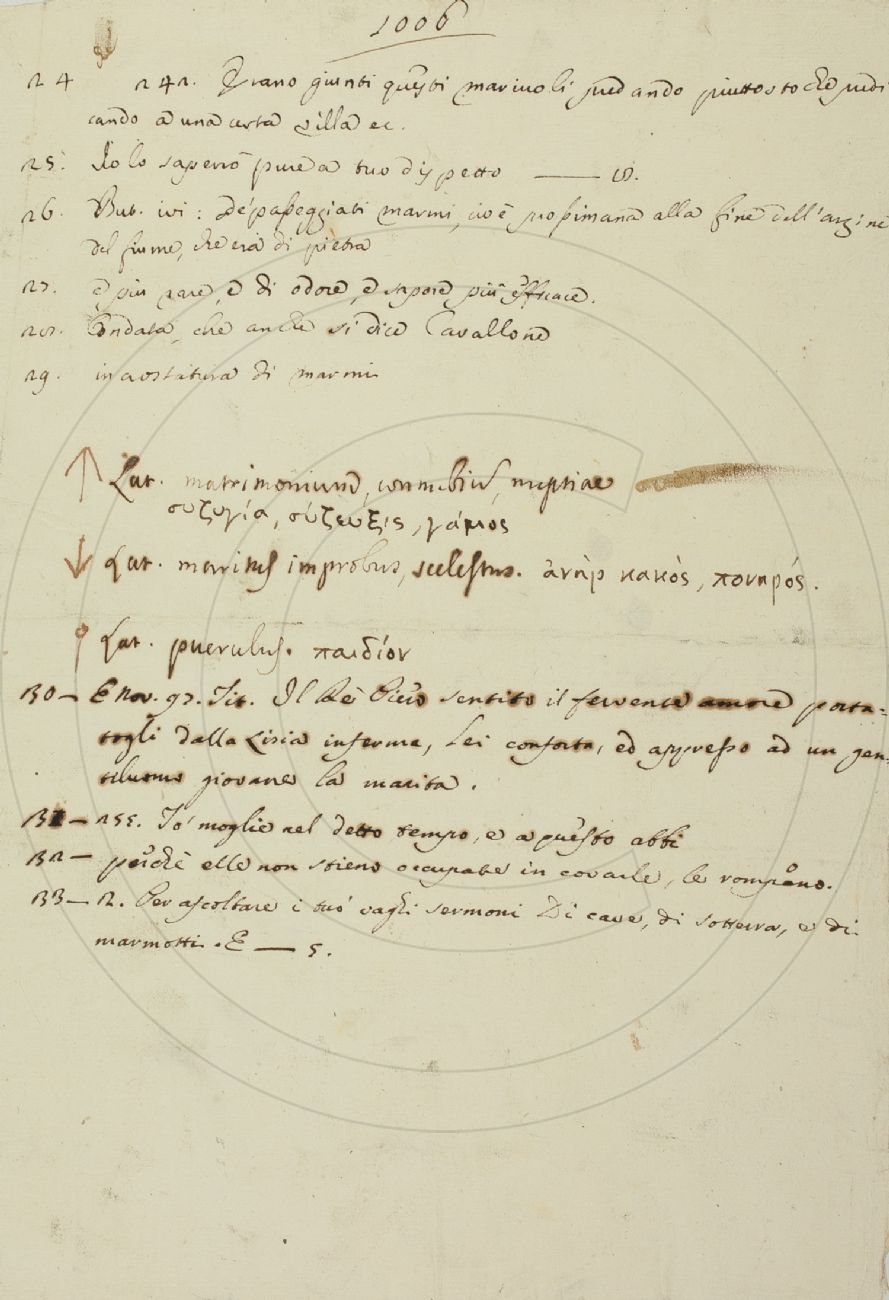 1006
24 242. Erano giunti questi mariuoli predando piuttosto che predi
cando a una certa villa ec.
25. Io lo saperrò pure a tuo dispetto —— 18.
26. But. ivi: De' passeggiati marmi, cioè prossimana alla fine dell'argine
del fiume, che era di pietra
27. e piu rare, e di odore, e sapore più efficace.
28. Ondata, che anche si dice Cavallone
29. incrostatura di marmi
↑ Lat. matrimonium, connubium, nuptiae
συζυγία, σύζευξις, γάμος
↓ Lat. maritus improbus, scelestus. ἀνὴρ κακὸς, πονηρός.
Lat. puerulus. παιδίον
30 — E nov. 97. Tit. Il Re Piero sentito il fervente amore porta=
togli dalla Lisia inferma, lei conforta, ed appresso ad un gen=
tiluomo giovane la marita.
31 — 255. To' moglie nel detto tempo, e a questo abbi
32 — perchè elle non stieno occupate in covarle, le rompano.
33 — 2. Per ascoltare i tuo' vaghi sermoni Di cave, di sotterra, e di
marmotti. E —— 5.